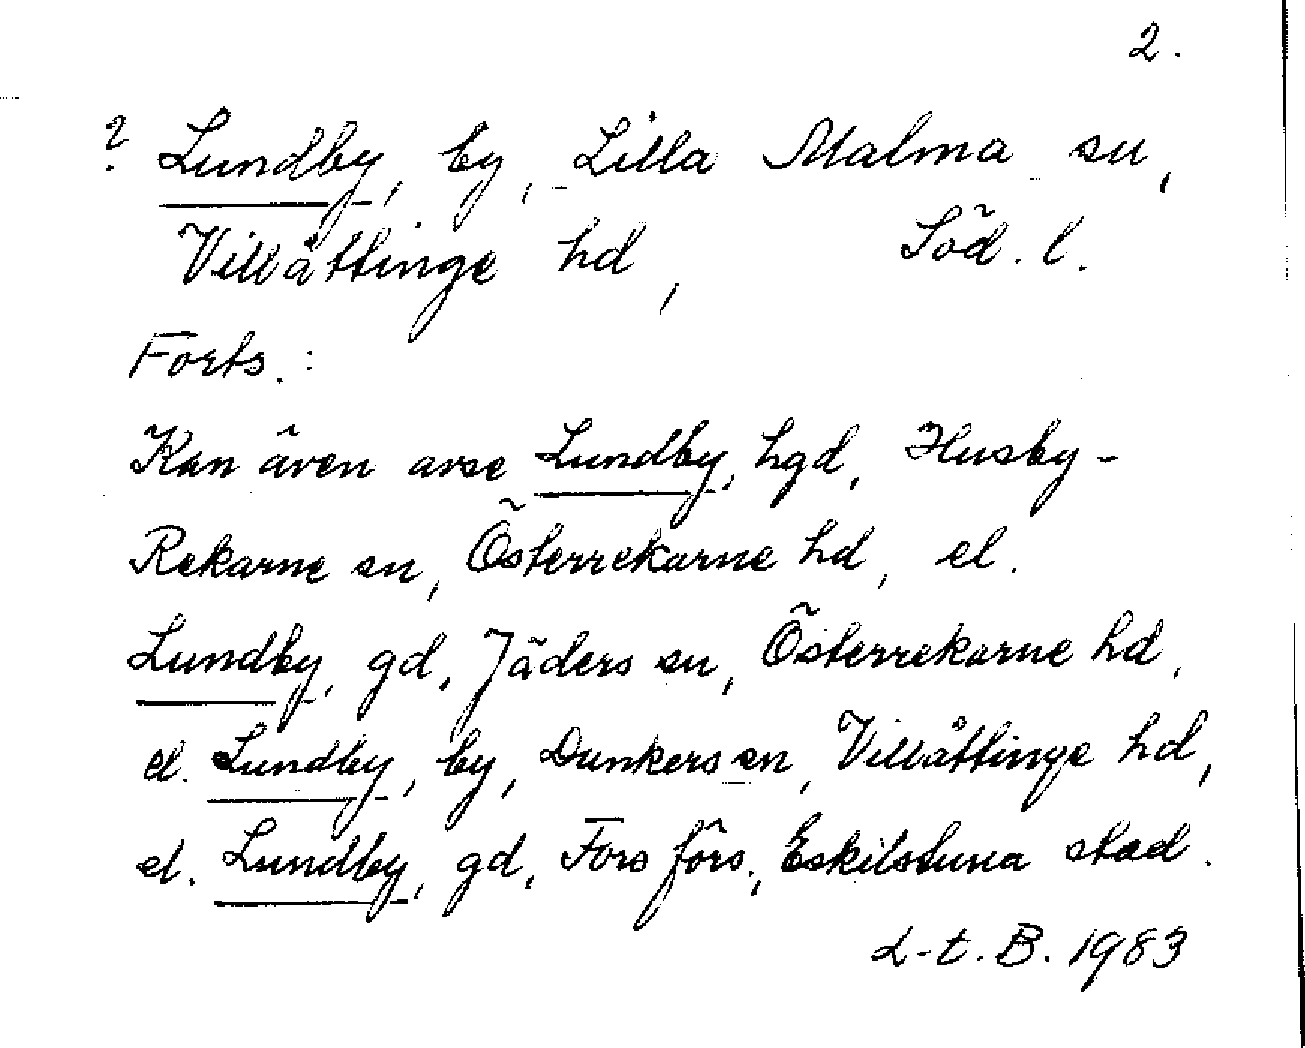 2.
? Lundby, by, Lilla Malma sn,
Villåttinge hd, Söd. l.
Forts.:
Kan även avse Lundby, hgd, Husby-
Rekarne sn, Österrekarne hd, el.
Lundby, gd, Jäders sn, Österrekarne hd,
el. Lundby, by, Dunkers sn, Villåttinge hd,
el. Lundby, gd, Fors förs., Eskilstuna stad.
L-t. B. 1983